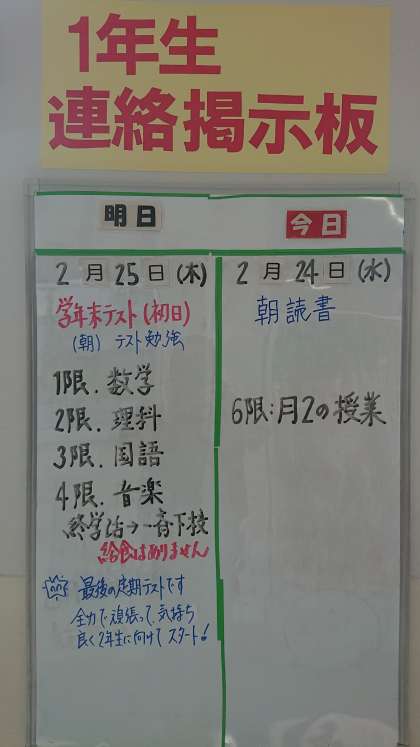 1年生
連絡掲示板
明日
2月25日(木)
学年末テスト(初日)
(朝) テスト勉強
1限.数学
2限.理科
3限.国語
4限.音楽
終学活→一斉下校
給食はありません
最後の定期テストです
全力で頑張って、気持ち
良く2年生に向けてスタート!
今日
2月24日(水)
朝読書
6限:月2の授業